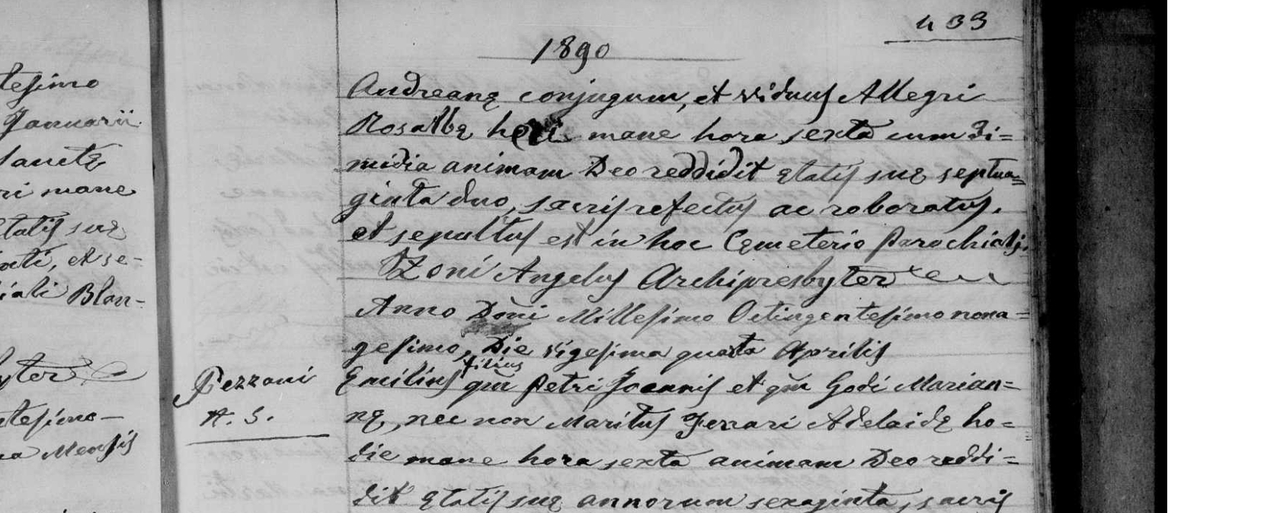 433
1890
tesimo
Januarii
Sanctę
ri mane
tatis suę
cati, et se-
iali Blan-
yter
ntesimo
na Mensis
Andreanę conjugum, et viduus Allegri
Rosalbę heri mane hora sexta cum di=
midia animam Deo reddidit ętatis suę septua=
ginta duo, sacris refectus ac roboratus.
et sepultus est in hoc Cęmeterio Parochiali.
Zoni Angelus Archipresbyter
Anno Doni Millesimo Octingentesimo nona=
gesimo, Die vigesima quarta Aprilis
Pezzoni
A. 3.
filius
Emilius qm Petri Joannis et qm Godi Marian=
nę, nec non Maritus Ferrari Adelaidę ho=
die mane hora sexta animam Deo reddi=
dit ętatis suę annorum sexaginta, sacris